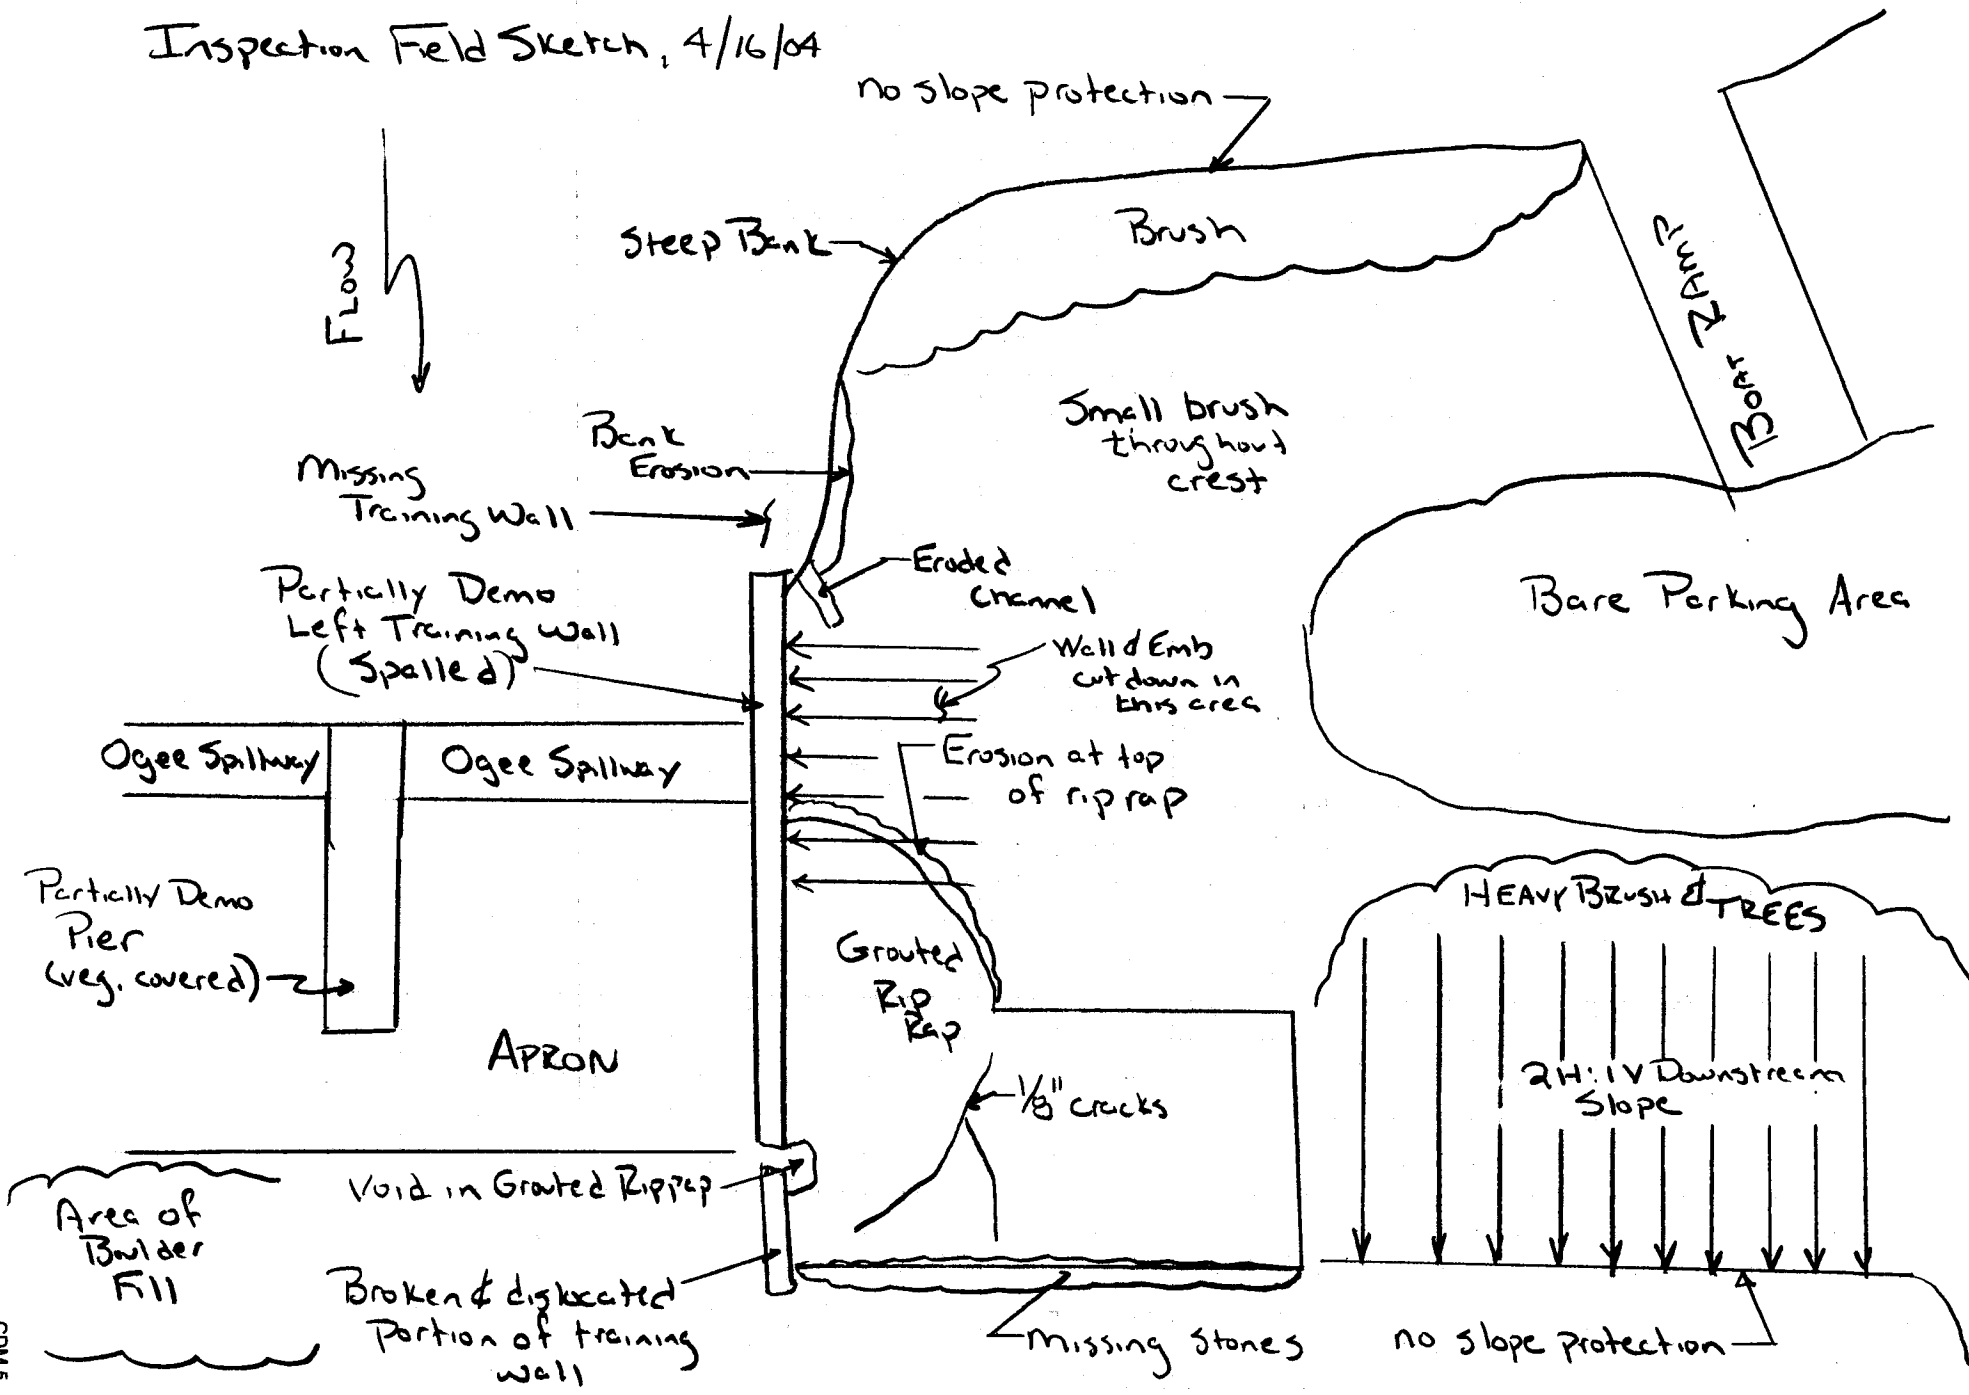 Inspection Field Sketch, 4/16/04
no slope protection
Steep Bank
Brush
Flow
Boat RAMP
Bank
Erosion
Small brush
throughout
crest
Missing
Training Wall
Eroded
Channel
Partially Demo
Left Training Wall
(Spalled)
Wall & Emb
cut down in
this area
Bare Parking Area
Ogee Spillway
Ogee Spillway
Erosion at top
of rip rap
Partially Demo
Pier
(veg. covered)
HEAVY BRUSH & TREES
Grouted
Rip
Rap
APRON
1/8" cracks
2H:1V Downstream
Slope
Void in Grouted Riprap
Area of
Boulder
Fill
Broken & dislocated
Portion of training
wall
Missing Stones
no slope protection